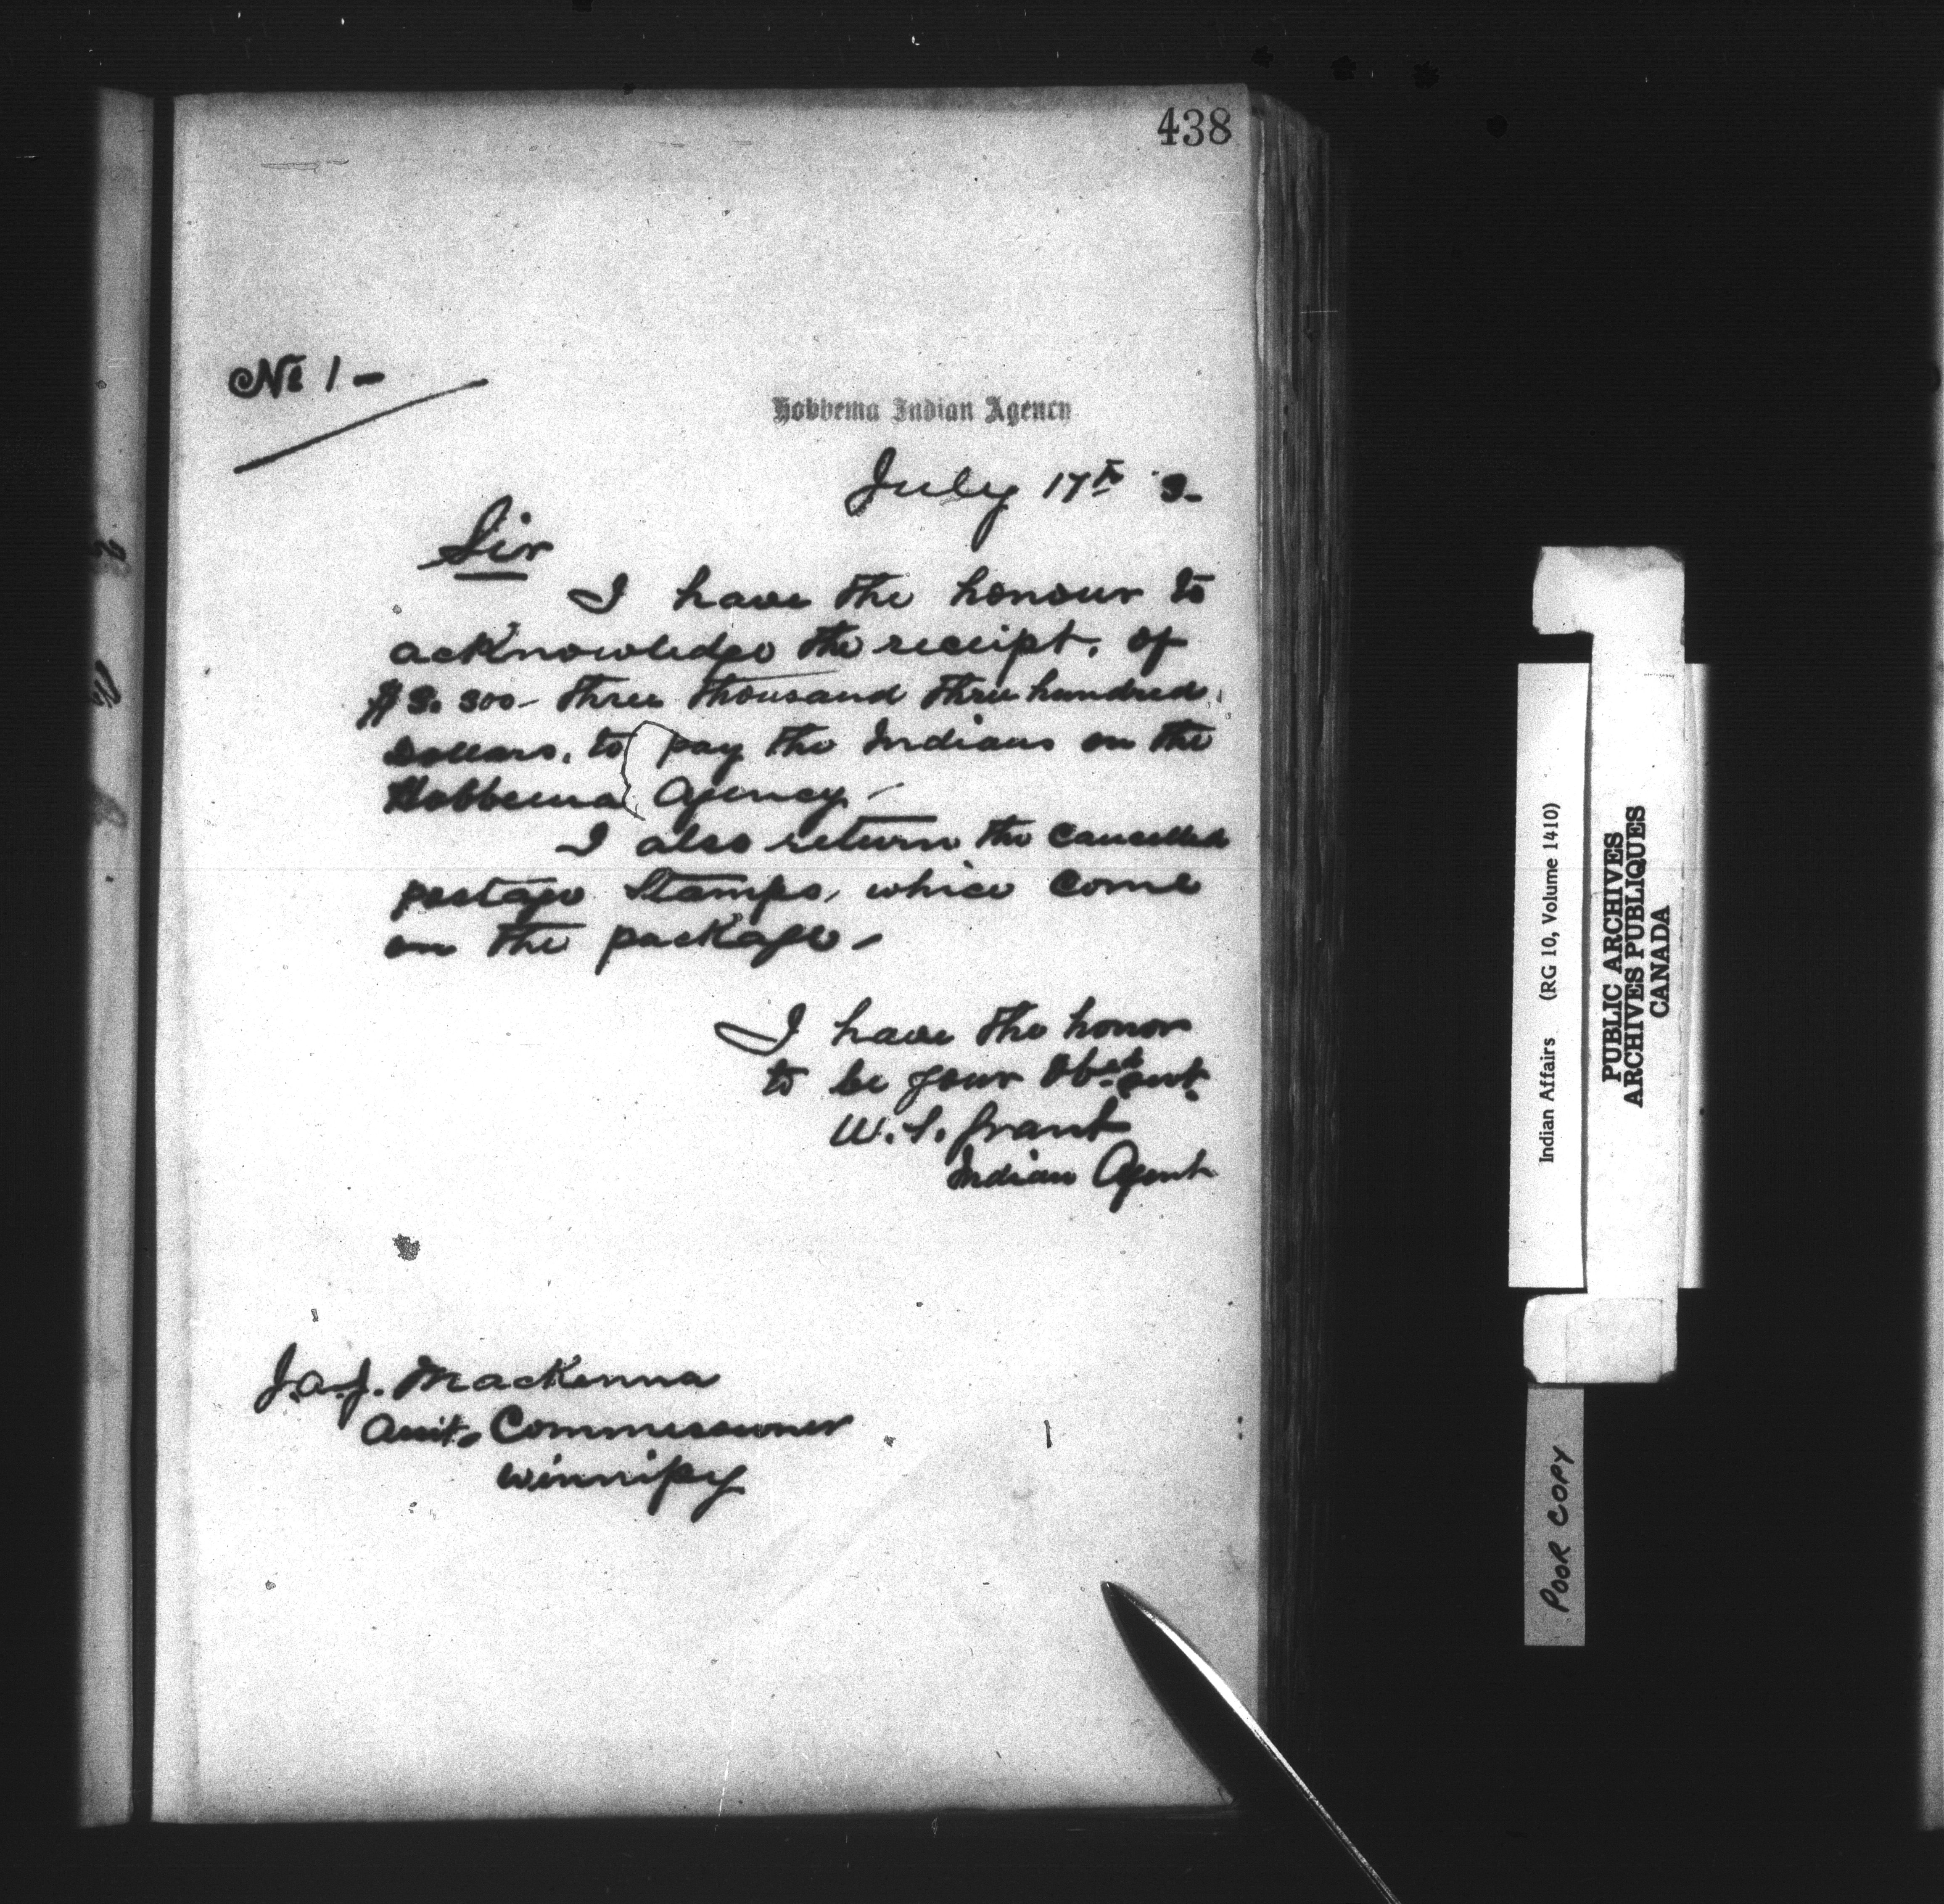 438
No 1 -
Hobbema Indian Agency
July 17th 3-
Sir
I have the honour to
acknowledge the receipt. of
$3.300- three thousand three hundred
Dollars. to pay the Indians on the
Hobbema Agency -
I also return the cancelled
postage stamps, which come
on the package -
I have the honor
to be your Obed servt.
W. S. Grant
Indian Agent
J. A. J. MacKenna
Assit. Commissioner
Winnipeg
Indian Affairs (RG 10, Volume 1410)
PUBLIC ARCHIVES
ARCHIVES PUBLIQUES
CANADA
POOR COPY